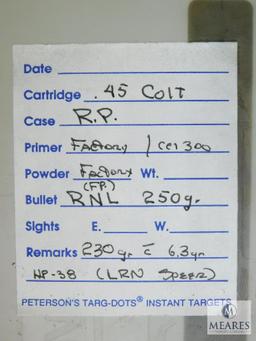 Date
Cartridge .45 Colt
Case R.P.
Primer Factory / CCI 300
Powder Factory Wt.
(FP.)
Bullet RNL 250gr.
Sights E. W.
Remarks 230 gr. c̄ 6.3gr
HP-38 (LRN Speer)
PETERSON'S TARG-DOTS® INSTANT TARGETS
MEARES